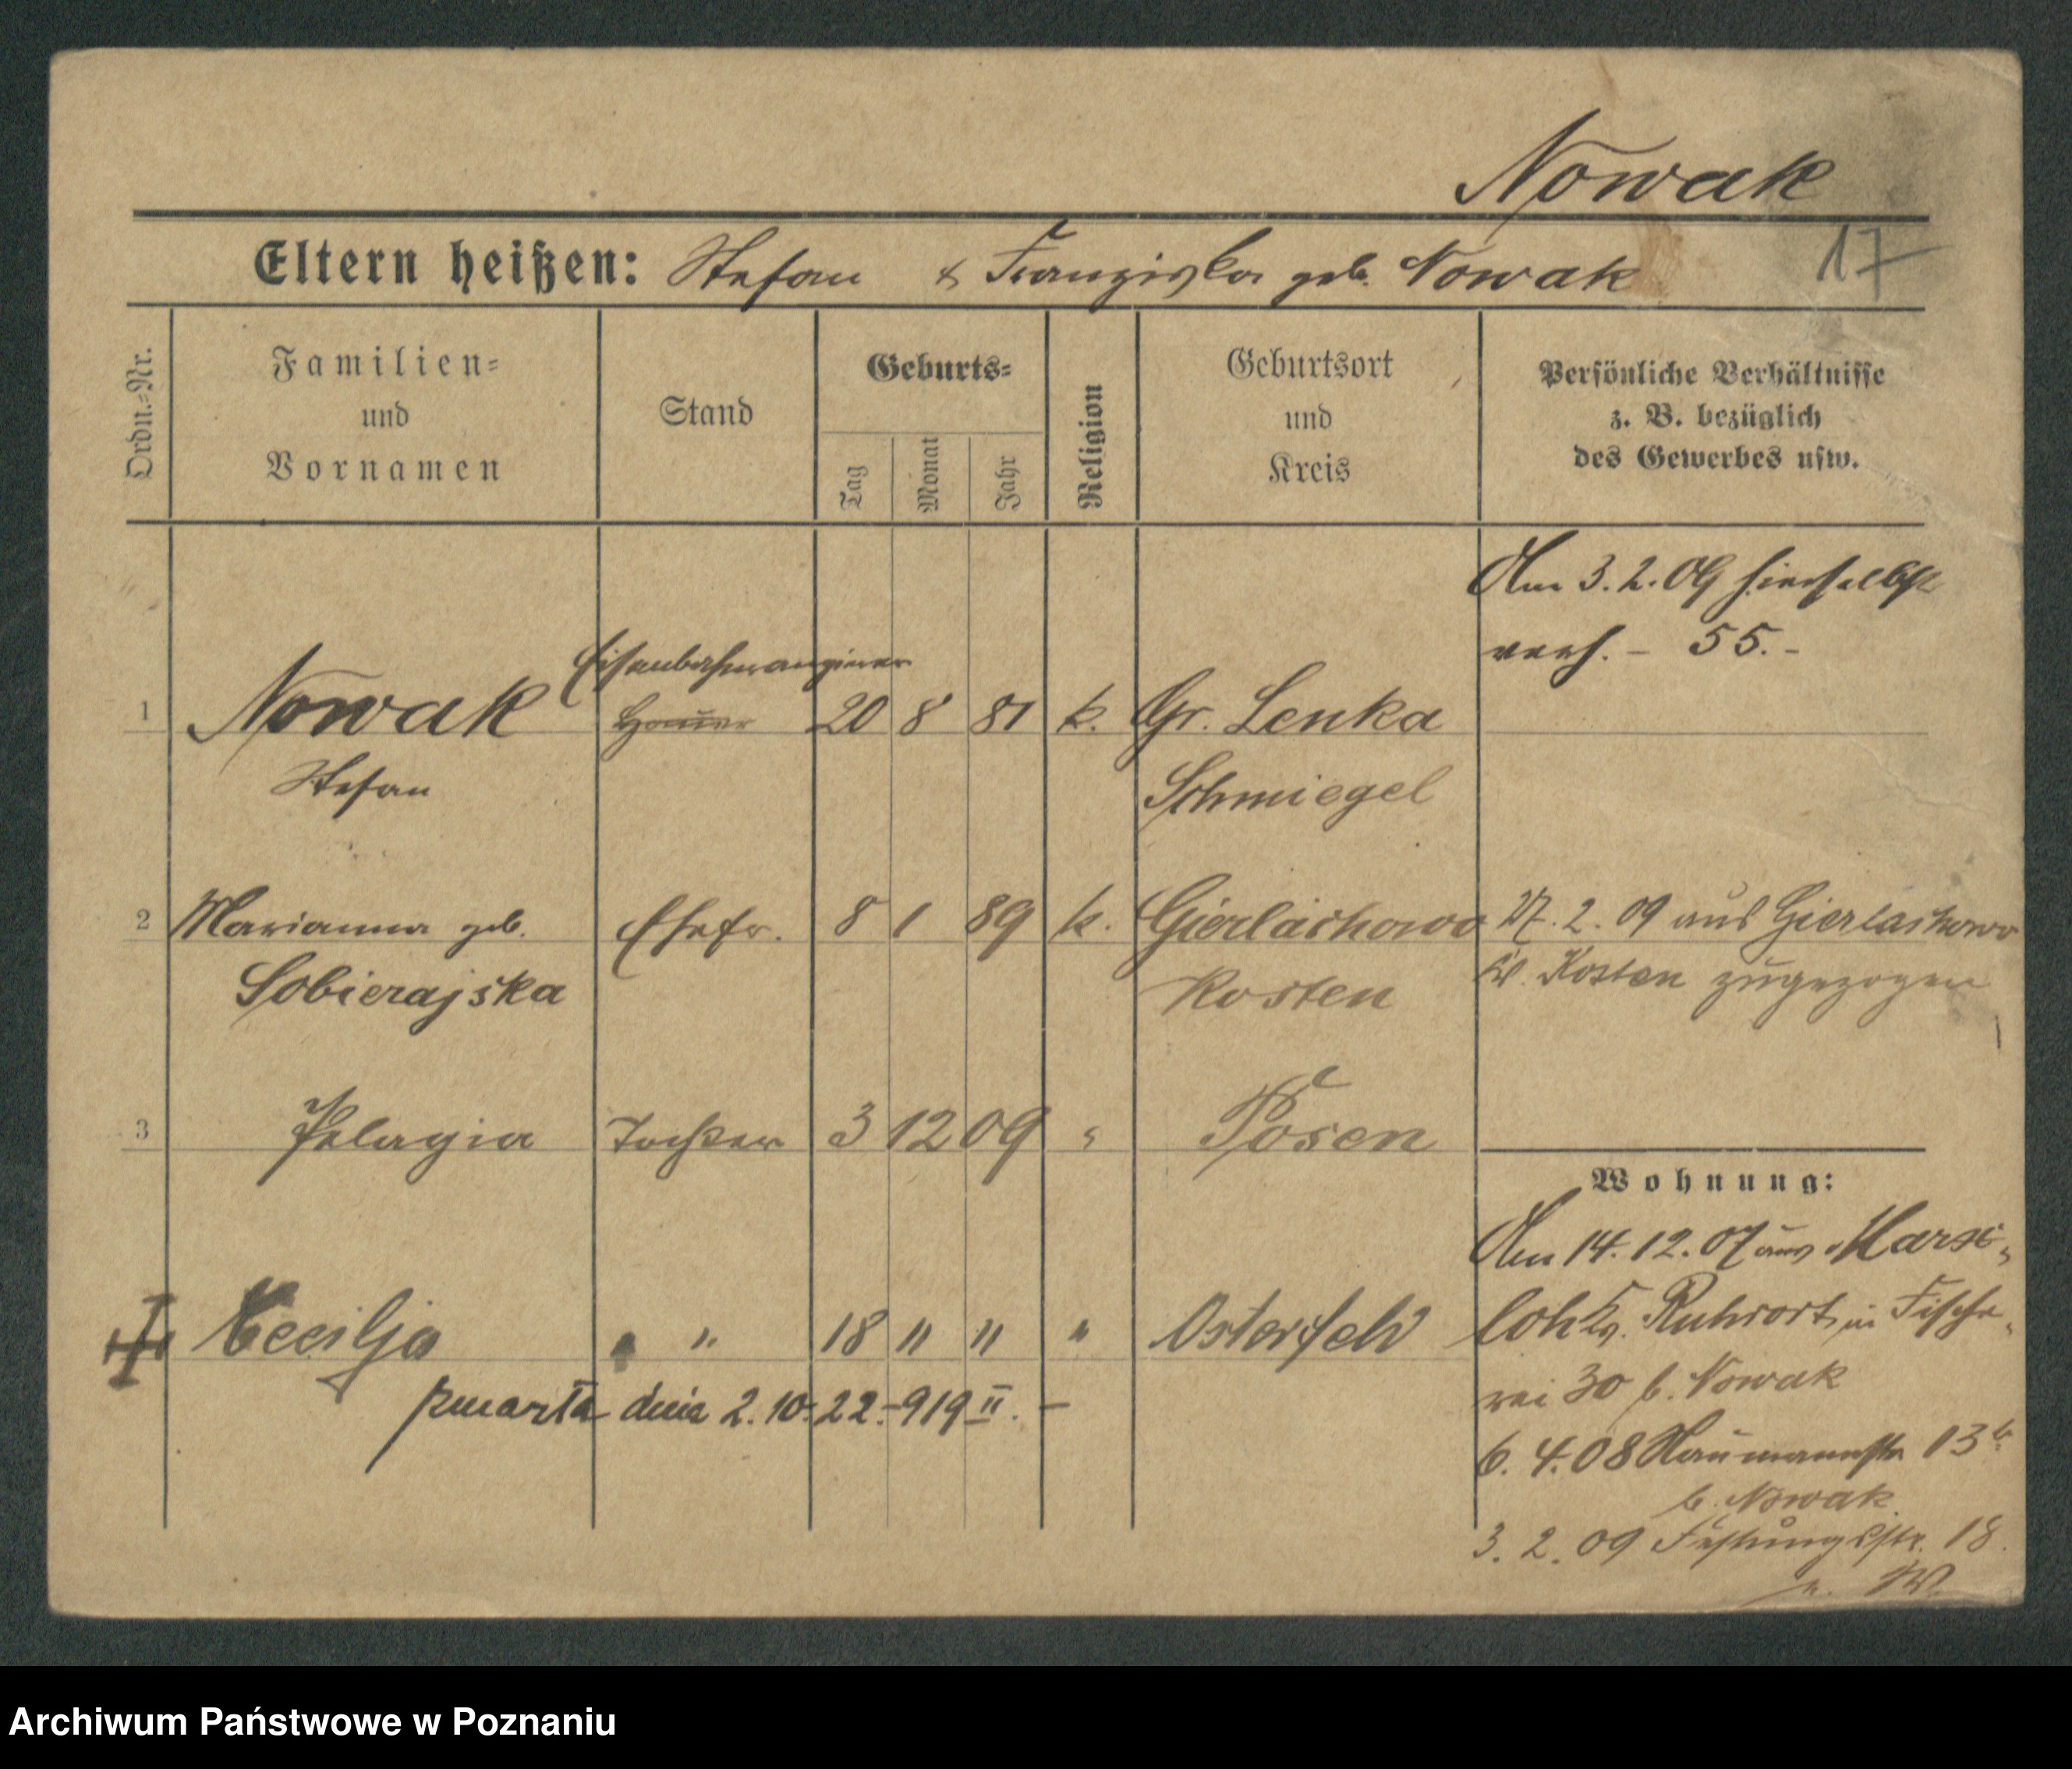 Nowak
Eltern heißen: Stefan & Franziska geb. Nowak
17
Ordn.=Nr.
Familien=
und
Vornamen
Stand
Geburts=
Tag
Monat
Jahr
Religion
Geburtsort
und
Kreis
Persönliche Verhältnisse
z. B. bezüglich
des Gewerbes usw.
Am 3.2.09 hierselbst
verh. – 55.–
Eisenbahnrangierer
1 Nowak Hauer 20 8 81 k. Gr. Lenka
Stefan Schmiegel
2 Marianna geb. Ehefr. 8 1 89 k. Gierlachowo 27. 2. 09 aus Gierlachowo
Sobierajska Kosten Kr. Kosten zugezogen
3 Pelagia Tochter 3 12 09 " Posen
Wohnung:
Am 14. 12. 07 aus Marx-
loh Kr. Ruhrort, in Fische-
rei 30 b. Nowak
Cecilja " " 18 " " " Osterfeld
zmarła dnia 2. 10. 22. – 919 II. –
6. 4. 08 Naumannstr. 13b
b. Nowak
3. 2. 09 Festungsstr. 18.
Archiwum Państwowe w Poznaniu